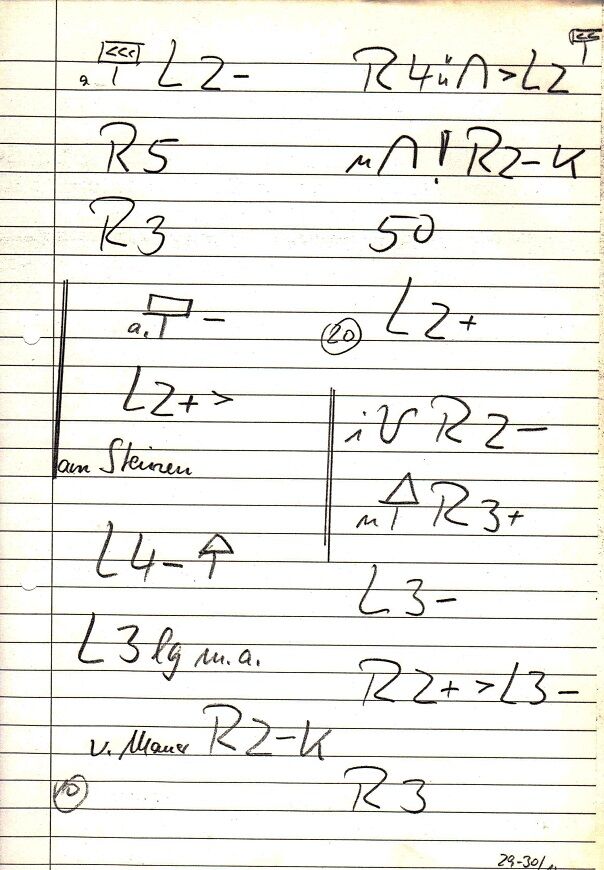 <<<
a. L2-
R5
R3
a. -
L2+ >
am Steinen
L4-
L3 lg m.a.
v. Mauer R2-K
10
<<
R4 ü ∩ > L2
n ∩ ! R2-K
50
20 L2+
i V R2-
n R3+
L3-
R2+ > L3-
R3
29-30/